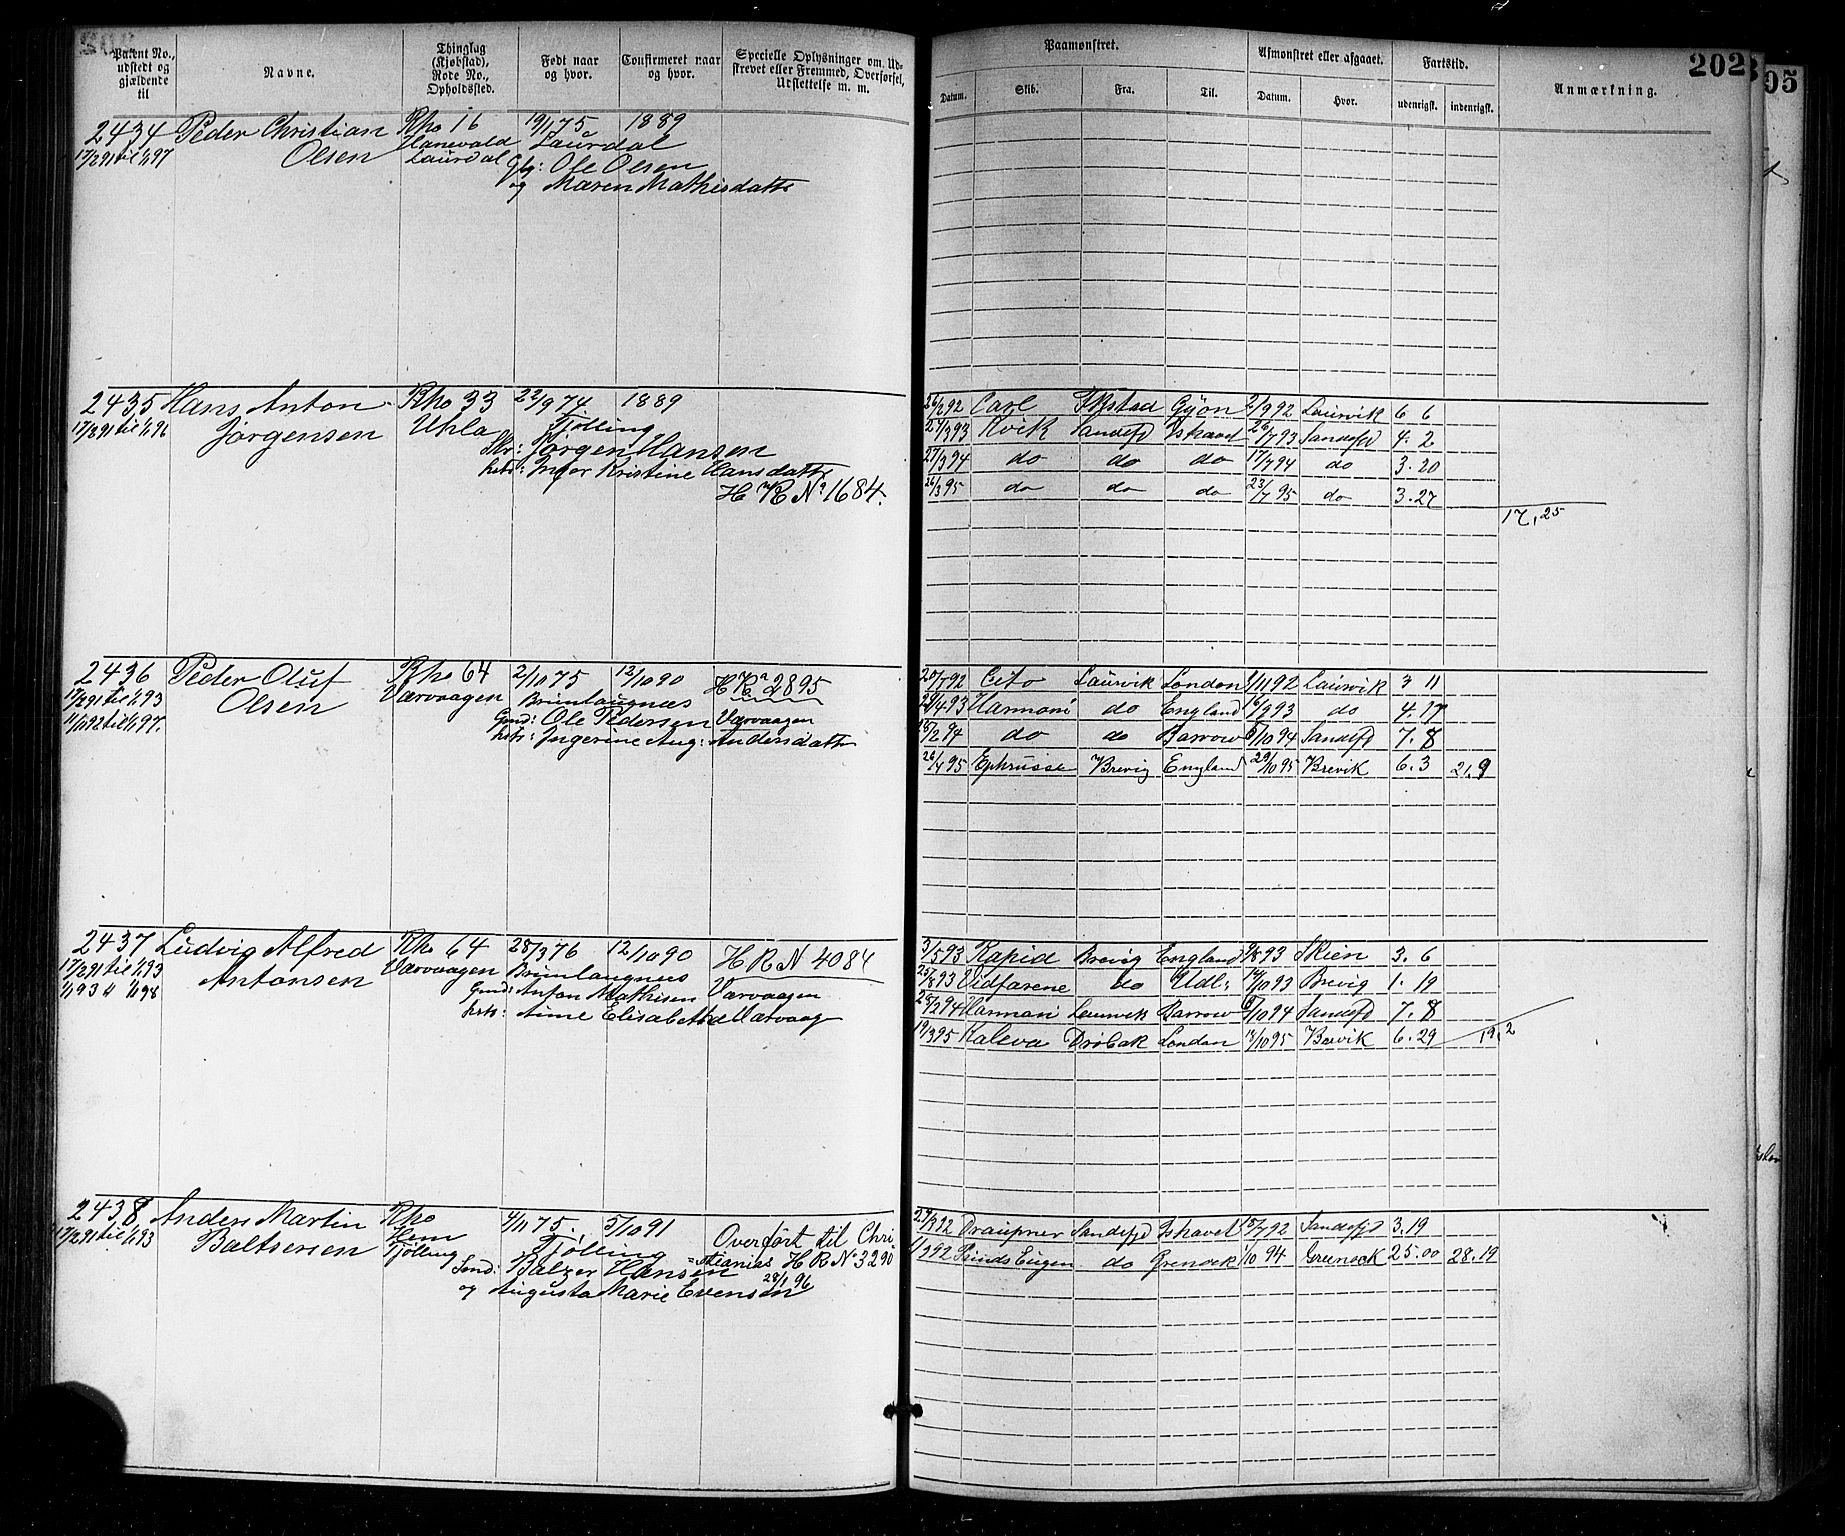 202
95
Patent No., udstedt og gjældende til
Navne.
Thinglag (Kjøbstad), Rode No., Opholdssted.
Født naar og hvor.
Confirmeret naar og hvor.
Specielle Oplysninger om, Udskrevet eller Fremmed, Overførsel, Udslettelse m. m.
Paamønstret.
Afmønstret eller afgaaet.
Fartstid.
Anmærkning.
Datum.
Skib.
Fra.
Til.
Datum.
Hvor.
udenrigsk.
indenrigsk.
2434 Peder Christian Rno 16 19/1 75 1889
17/2 91 til 1/1 97 Olsen Hanevold Laurdal
Laurdal Gbg: Ole Olsen
og Maren Mathisdatte
2435 Hans Anton Rno 33 22/9 74 1889
17/2 91 til 1/1 96 Jørgensen Uhla Tjølling
Skr: Jørgen Hansen
hstr: Inger Kristine Hansdatte
H R No 1684.
26/2 92 Carl Gyon 2/9 92 Laurvik 6 6
27/3 93 Kvik Sandefd Ishavet 26/7 93 Sandefjd 4. 2
27/3 94 do do do 17/7 94 do 3. 20
26/3 95 do do do 23/7 95 do 3. 27
17, 25
2436 Peder Oluf Rno 64 2/10 75 12/10 90 H R No 2895
17/2 91 til 1/1 93 Olsen Værvaagen Brunlaugnæs
11/1 92 til 1/1 97. Gmd: Ole Pedersen Værvaagen
hstr: Ingerine Aug: Andersdatte
20/7 92 Cito Laurvik London 1/11 92 Laurvik 3 11
29/4 93 Harmoni do England 16/9 93 do 4. 17
do do Barrow /10 94 Sandefd 7. 8
26/4 95 Brevig England 29/10 95 Brevik 6. 3 21. 9
2437 Ludvig Alfred Rno 64 28/3 76 12/10 90 H R N 4084
17/2 91 til 1/1 93 Antonsen Værvaagen Brunlaugnæs
1/1 93 " 1/1 98 Gmd: Anton Mathisen Værvaagen
hstr: Anne Elisabeth Værvaag
3/5 93 Rapid Brevig England 9/8 93 Skien 3. 6
25/8 93 Vidfarene do Udl: 14/10 93 Brevig 1. 19
25/2 94 Harmani Laurvik Barrow /10 94 Sandefd 7. 8
19/3 95 Kaleva Drøbak London 18/10 95 Brevik 6. 29 19. 2
2438 Anders Martin Rno 4/11 75. 5/10 91 Overført til Chri
17/2 91 til 1/1 93 Baltsersen Hem Tjølling =stianias H R No 3290
Tjølling Smd: Balzer Hansen 28/1 96
og Augusta Marie Evensen
29/3 92 Draupner Sandefjd Ishavet 15/7 92 Sandefjd 3. 19
1/9 92 Prinds Eugen do Grenock 1/10 94 Greenock 25.00 28.19